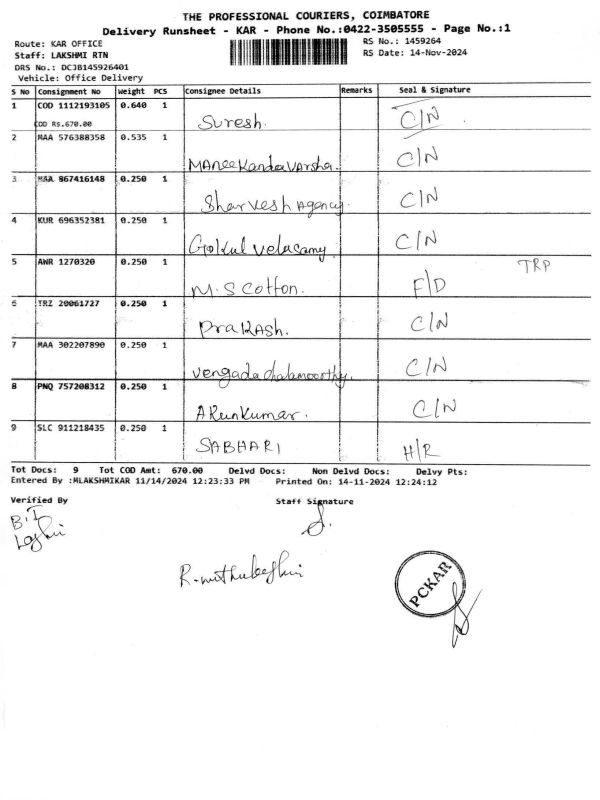 THE PROFESSIONAL COURIERS, COIMBATORE
Delivery Runsheet - KAR - Phone No.:0422-3505555 - Page No.:1
Route: KAR OFFICE RS No.: 1459264
Staff: LAKSHMI RTN RS Date: 14-Nov-2024
DRS No.: DCJB145926401
Vehicle: Office Delivery
S No Consignment No Weight PCS Consignee Details Remarks Seal & Signature
1 COD 1112193105 0.640 1
COD Rs.670.00 Suresh. C/N
2 MAA 576388358 0.535 1
Maneekandavarsha. C/N
3 MAA 867416148 0.250 1
Sharvesh Agency. C/N
4 KUR 696352381 0.250 1
Gokul velusamy C/N
5 AWR 1270320 0.250 1 TRP
M.S Cotton. F/D
6 TRZ 20061727 0.250 1
Prakash. C/N
7 MAA 302207890 0.250 1
vengadachalamoorthy. C/N
8 PNQ 757208312 0.250 1
ARunkumar. C/N
9 SLC 911218435 0.250 1
SABHARI H/R
Tot Docs: 9 Tot COD Amt: 670.00 Delvd Docs: Non Delvd Docs: Delvy Pts:
Entered By :MLAKSHMIKAR 11/14/2024 12:23:33 PM Printed On: 14-11-2024 12:24:12
Verified By Staff Signature
B.I
PCKAR